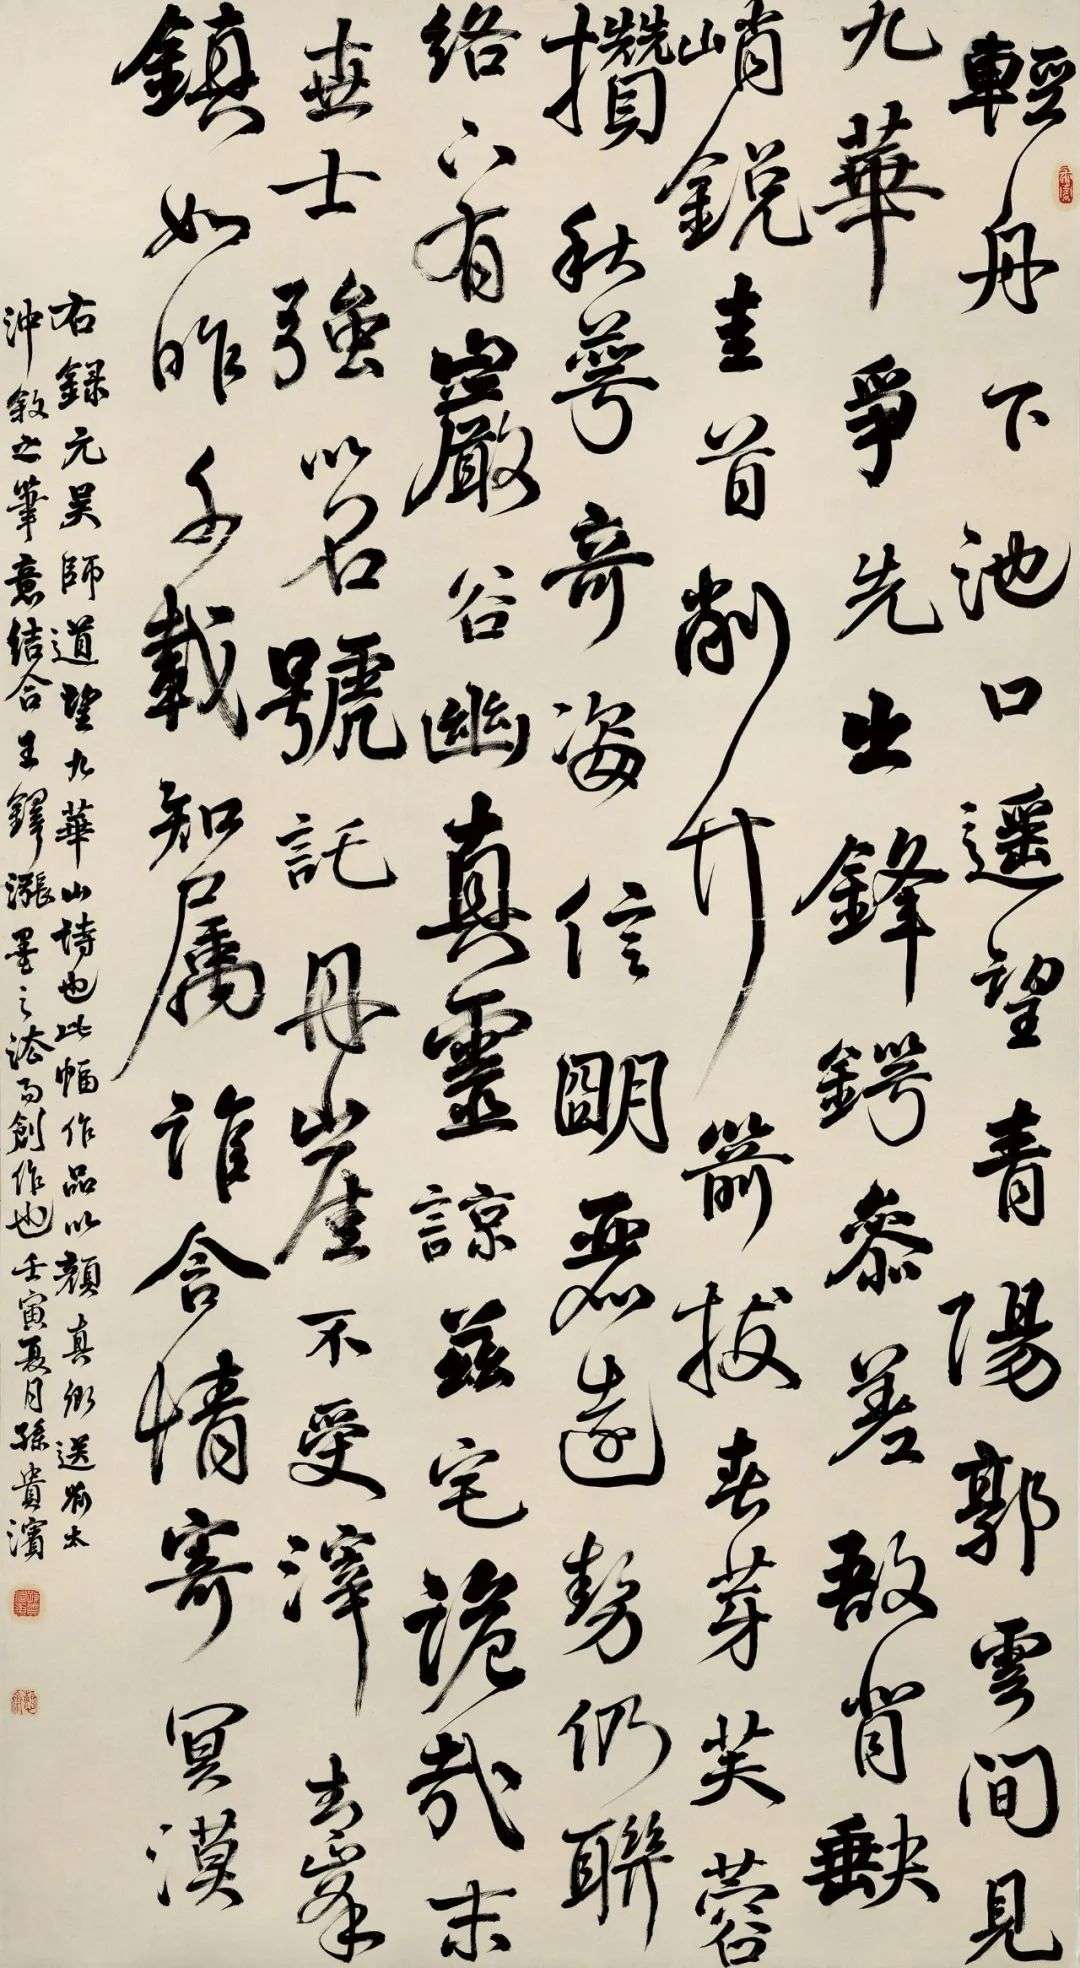 輕舟下池口遥望青陽郭雲間見
九華爭先出鋒鍔參差敧背缺
峭鋭圭首削竹箭拔春芽芙蓉
攢秋萼奇姿信明麗遠勢仍聯
絡下有巖谷幽真靈諒兹宅詭哉末
世士強以名號託丹崖不受滓青峯
鎮如昨千載知屬誰含情寄冥漠
右録元吴師道望九華山詩也此幅作品以顏真卿送劉太
沖敘之筆意結合王鐸漲墨之法而創作也壬寅夏月孫貴濱